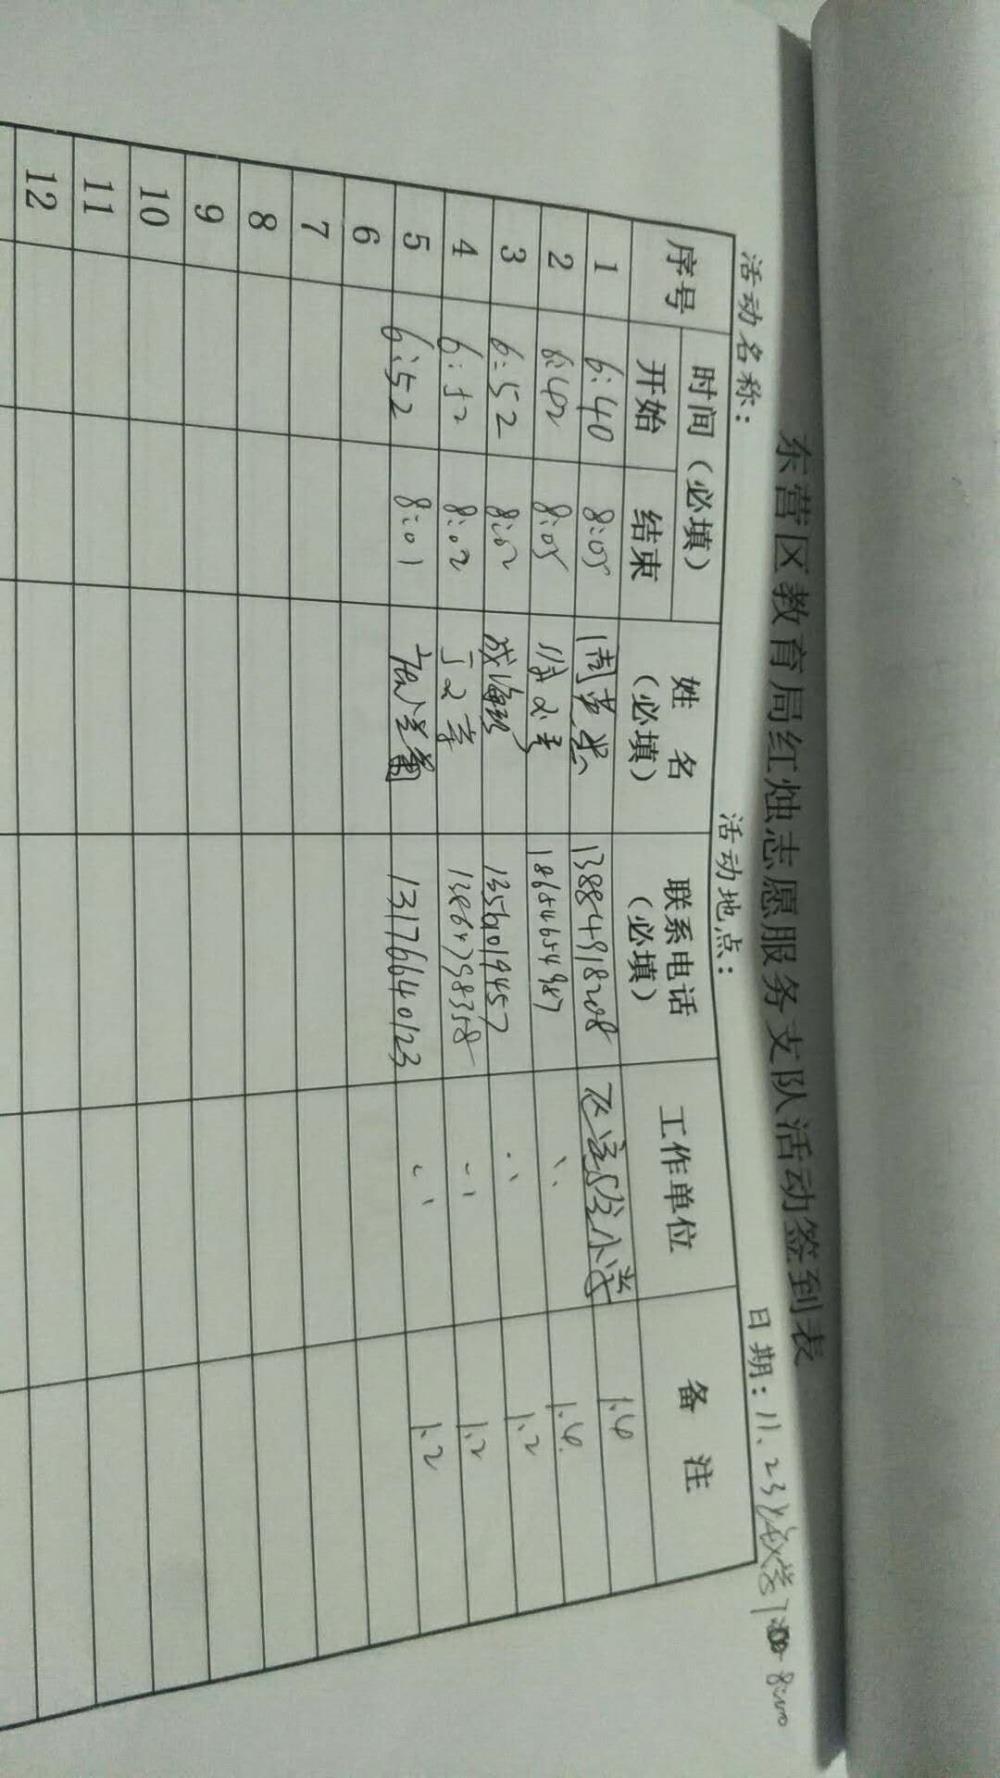 东营区教育局红烛志愿服务支队活动签到表
活动名称： 活动地点： 日期：11.23
序号 时间（必填） 姓 名（必填） 联系电话（必填） 工作单位 备 注
开始 结束
1 6:40 8:05 13884918208 小学 1.4
2 6:42 8:05 18654654987 〃 1.4
3 6:52 8:02 13561019457 〃 1.2
4 6:52 8:02 13864798358 〃 1.2
5 6:52 8:01 13176640123 〃 1.2
6
7
8
9
10
11
12